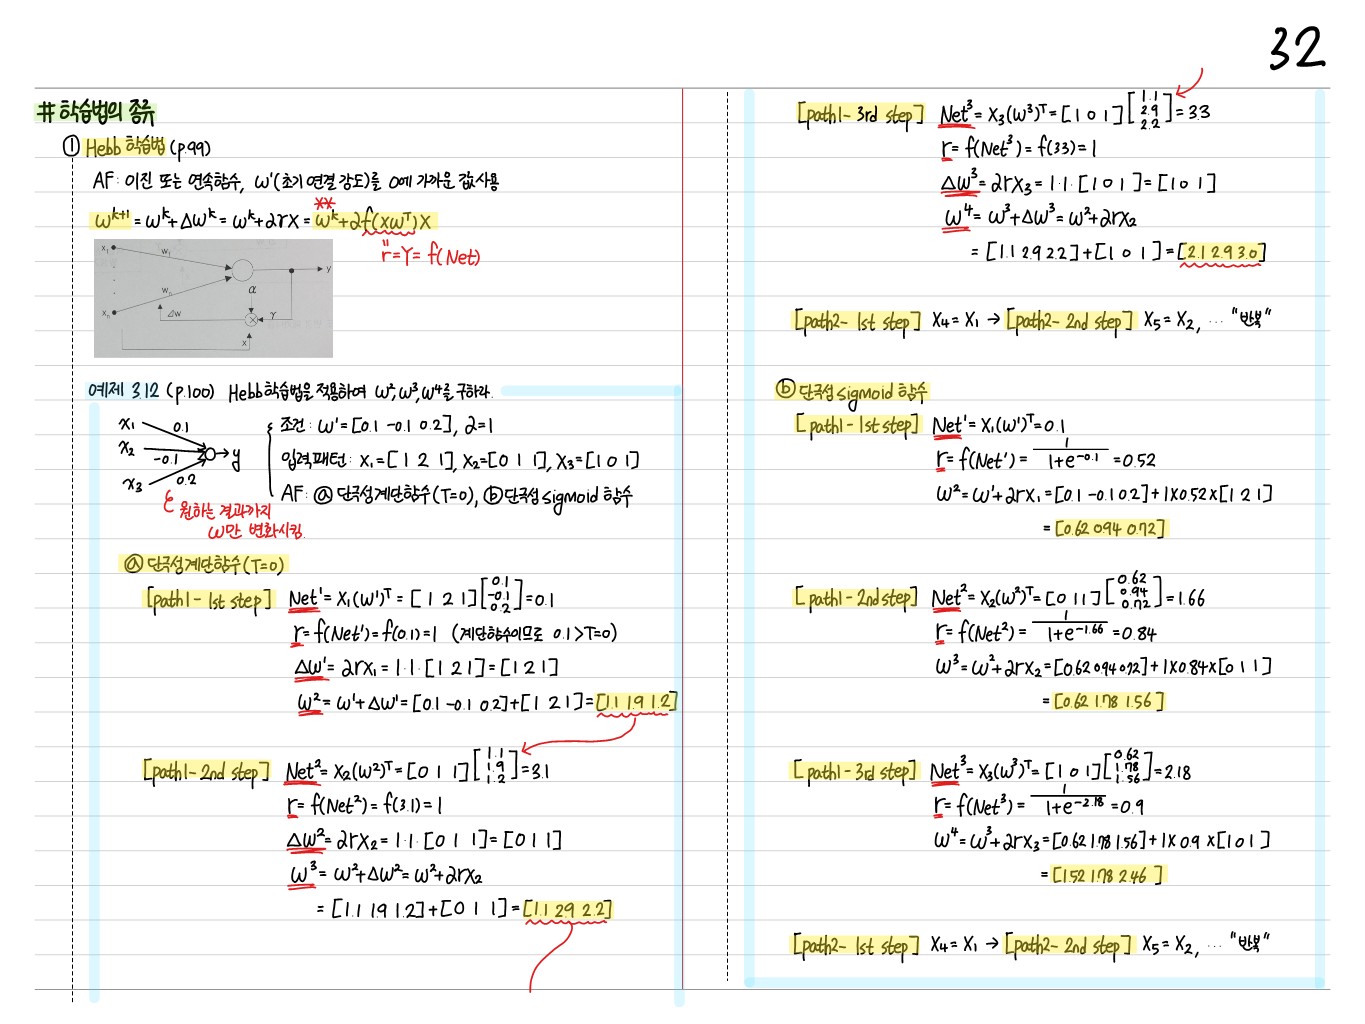 32
# 학습법의 종류
① Hebb 학습법 (p.99)
AF: 이진 또는 연속함수, w¹(초기 연결 강도)를 0에 가까운 값 사용
**
wᵏ⁺¹ = wᵏ+Δwᵏ = wᵏ+αrX = wᵏ+αf(XWᵀ)X
"r=Y= f(Net)
x₁ w₁ y
α
xₙ wₙ Δw × γ
x
예제 3.12 (p.100) Hebb 학습법을 적용하여 w², w³, w⁴를 구하라.
x₁ 0.1
x₂ -0.1 y
x₃ 0.2
조건: w¹=[0.1 -0.1 0.2], α=1
입력패턴: X₁=[1 2 1], X₂=[0 1 1], X₃=[1 0 1]
AF: ⓐ 단극성계단함수(T=0), ⓑ 단극성 sigmoid 함수
원하는 결과까지
w만 변화시킴.
ⓐ 단극성계단함수(T=0)
[path1- 1st step] Net¹= X₁(w¹)ᵀ= [1 2 1][0.1 -0.1 0.2]=0.1
r= f(Net¹)= f(0.1)=1 (계단함수이므로 0.1>T=0)
Δw¹= αrX₁ = 1·1·[1 2 1]=[1 2 1]
w²= w¹+Δw¹=[0.1 -0.1 0.2]+[1 2 1]=[1.1 1.9 1.2]
[path1-2nd step] Net²= X₂(w²)ᵀ=[0 1 1][1.1 1.9 1.2]=3.1
r= f(Net²)= f(3.1)=1
Δw²= αrX₂ = 1·1·[0 1 1]=[0 1 1]
w³= w²+Δw²= w²+αrX₂
= [1.1 1.9 1.2]+[0 1 1]=[1.1 2.9 2.2]
[path1-3rd step] Net³= X₃(w³)ᵀ=[1 0 1][1.1 2.9 2.2]=3.3
r= f(Net³)= f(3.3)=1
Δw³=αrX₃=1·1·[1 0 1]=[1 0 1]
w⁴= w³+Δw³=w²+αrX₂
= [1.1 2.9 2.2]+[1 0 1]=[2.1 2.9 3.0]
[path2- 1st step] X₄=X₁ → [path2- 2nd step] X₅=X₂, ··· "반복"
ⓑ 단극성 sigmoid 함수
[path1-1st step] Net¹= X₁(w¹)ᵀ=0.1
r= f(Net¹)= 1/(1+e^-0.1) =0.52
w²=w¹+αrX₁=[0.1 -0.1 0.2]+1×0.52×[1 2 1]
= [0.62 0.94 0.72]
[path1-2nd step] Net²=X₂(w²)ᵀ=[0 1 1][0.62 0.94 0.72]=1.66
r= f(Net²)= 1/(1+e^-1.66) =0.84
w³=w²+αrX₂=[0.62 0.94 0.72]+1×0.84×[0 1 1]
= [0.62 1.78 1.56]
[path1-3rd step] Net³=X₃(w³)ᵀ=[1 0 1][0.62 1.78 1.56]=2.18
r= f(Net³)= 1/(1+e^-2.18) =0.9
w⁴=w³+αrX₃=[0.62 1.78 1.56]+1×0.9×[1 0 1]
= [1.52 1.78 2.46]
[path2- 1st step] X₄=X₁ → [path2- 2nd step] X₅=X₂, ··· "반복"